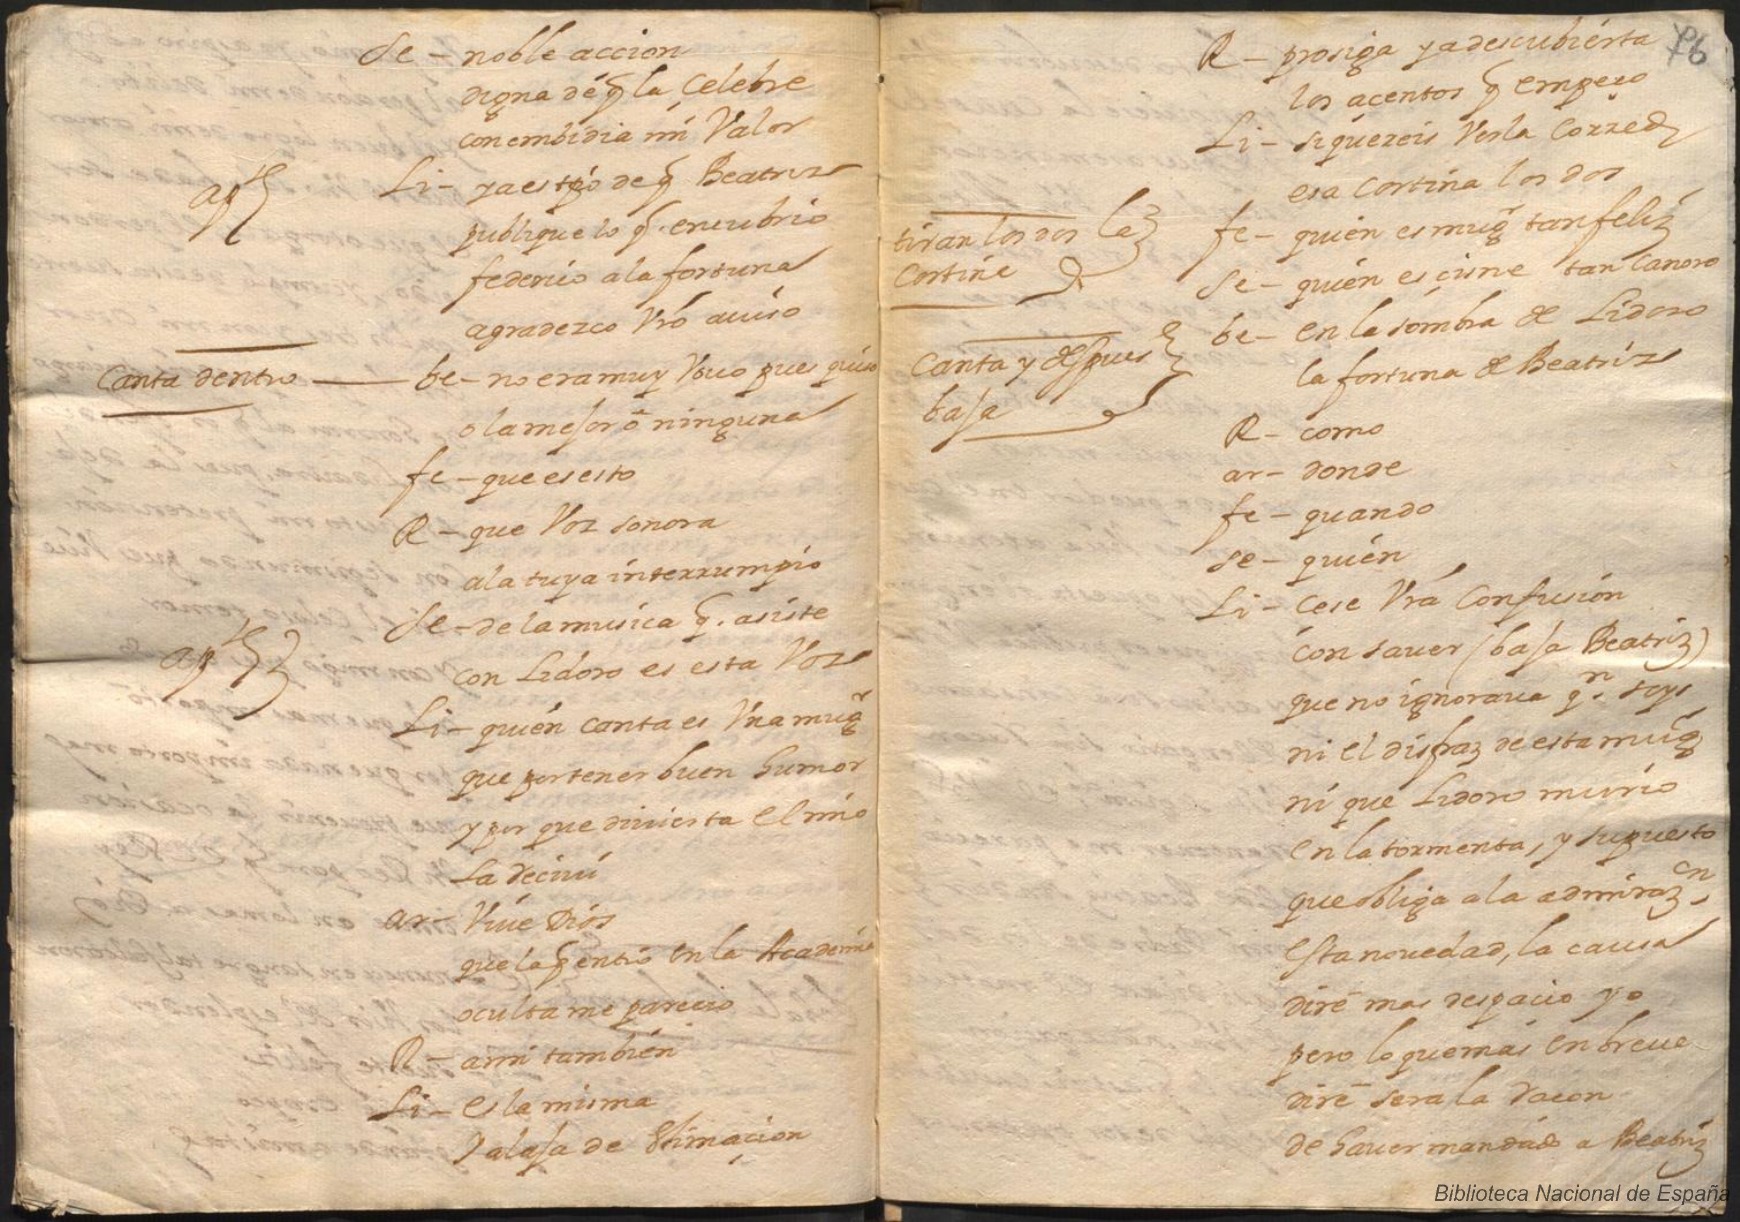 Se - noble accion
digna de q la Celebre
con embidia mi Valor
apte
Li - ya es tpo de q Beatriz
publique lo q. encubrio
federico a la fortuna
agradezco Vro auiso
Canta dentro - be - no era muy Vouo pues quiso
o la mejor o ninguna
fe - que es esto
R - que Voz sonora
a la tuya interrumpio
apte
Se - de la musica q. asiste
con Lidoro es esta Voz
Li - quien canta es Vna mugr
que por tener buen humor
y por que diuierta El mio
La Recivi
ar - Viue Dios
que la q entró En la Academia
oculta me parecio
R - a mi tambien
Li - es la misma
Y alaja de Estimacion
96
R - prosiga ya descubierta
los acentos q empezo
Li - si quereis Verla Corred
esa Cortina los dos
tiran los dos la
Cortina
fe - quien es mugr tan feliz
Se - quien es cisne tan Canoro
Canta y despues
baja
be - En la sombra de Lidoro
la fortuna de Beatriz
R - como
ar - donde
fe - quando
se - quien
Li - Cese Vra Confusion
con sauer (baja Beatriz)
que no ignoraua qn. soys
ni El disfraz de esta mugr
ni que Lidoro murio
En la tormenta, y supuesto
que obliga a la admirazn
Esta nouedad, la causa
diré mas despacio yo
pero lo que mas En breue
diré sera la Racon
de hauer mandado a Beatriz
Biblioteca Nacional de España